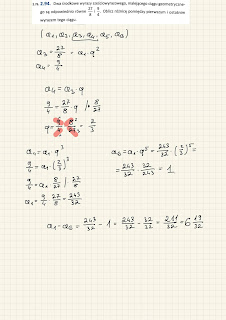 2.94. Dwa środkowe wyrazy sześciowyrazowego, malejącego ciągu geometryczne-
go są odpowiednio równe 27/8 i 9/4. Oblicz różnicę pomiędzy pierwszym i ostatnim
wyrazem tego ciągu.
(a₁, a₂, a₃, a₄, a₅, a₆)
a₃ = 27/8 = a₁ · q²
a₄ = 9/4
a₄ = a₃ · q
9/4 = 27/8 q | · 8/27
q = 9/4 · 8²/27₃ = 2/3
a₄ = a₁ · q³
9/4 = a₁ · (2/3)³
9/4 = a₁ · 8/27 | · 27/8
a₁ = 9/4 · 27/8 = 243/32
a₆ = a₁ · q⁵ = 243/32 · (2/3)⁵ =
= 243/32 · 32/243 = 1
a₁ - a₆ = 243/32 - 1 = 243/32 - 32/32 = 211/32 = 6 19/32